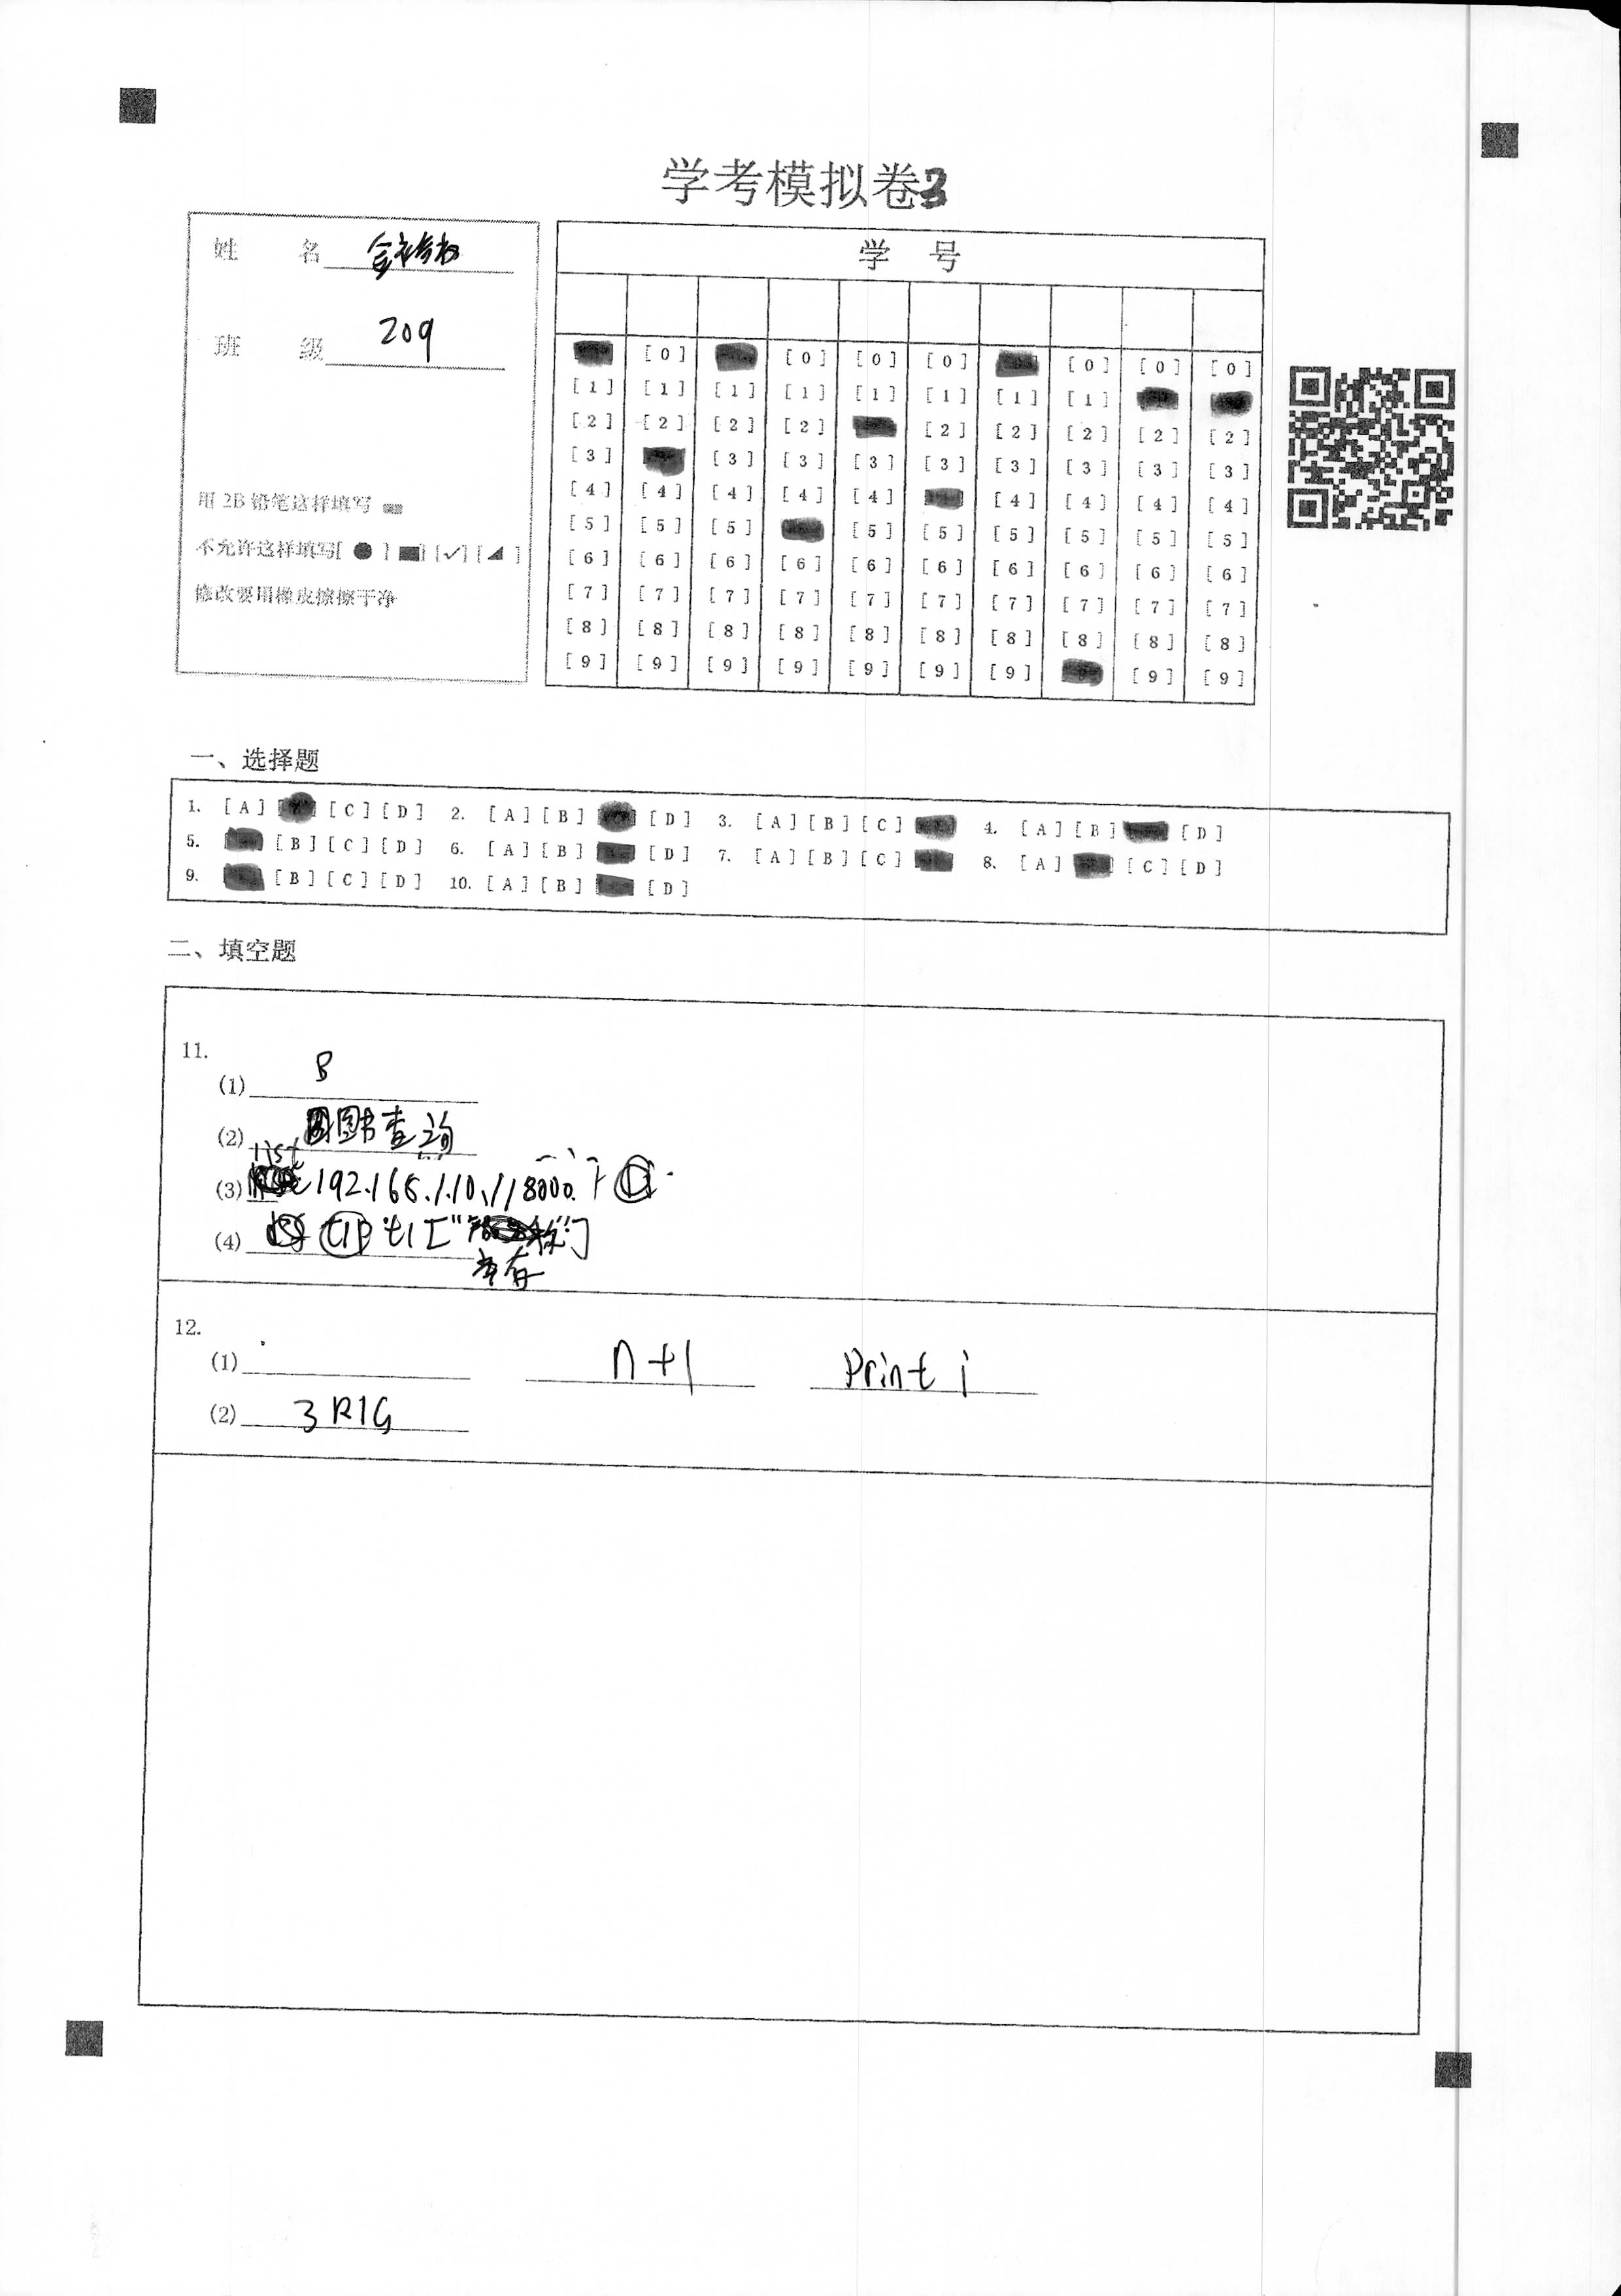 学考模拟卷3
姓 名
班 级 209
用 2B 铅笔这样填写
不允许这样填写[ ● ] [■] [✓] [◢ ]
修改要用橡皮擦擦干净
学 号
[0] [0] [0] [0] [0] [0]
[1] [1] [1] [1] [1] [1] [1] [1]
[2] [2] [2] [2] [2] [2] [2] [2] [2]
[3] [3] [3] [3] [3] [3] [3] [3] [3]
[4] [4] [4] [4] [4] [4] [4] [4] [4]
[5] [5] [5] [5] [5] [5] [5] [5] [5]
[6] [6] [6] [6] [6] [6] [6] [6] [6] [6]
[7] [7] [7] [7] [7] [7] [7] [7] [7] [7]
[8] [8] [8] [8] [8] [8] [8] [8] [8] [8]
[9] [9] [9] [9] [9] [9] [9] [9] [9]
一、选择题
1. [A] [C] [D] 2. [A] [B] [D] 3. [A] [B] [C] 4. [A] [B] [D]
5. [B] [C] [D] 6. [A] [B] [D] 7. [A] [B] [C] 8. [A] [C] [D]
9. [B] [C] [D] 10. [A] [B] [D]
二、填空题
11.
(1) B
(2) 图书查询
(3) list 192.168.1.10.//8000.
(4) t1["
12.
(1) n+1 Print i
(2) 3R1G